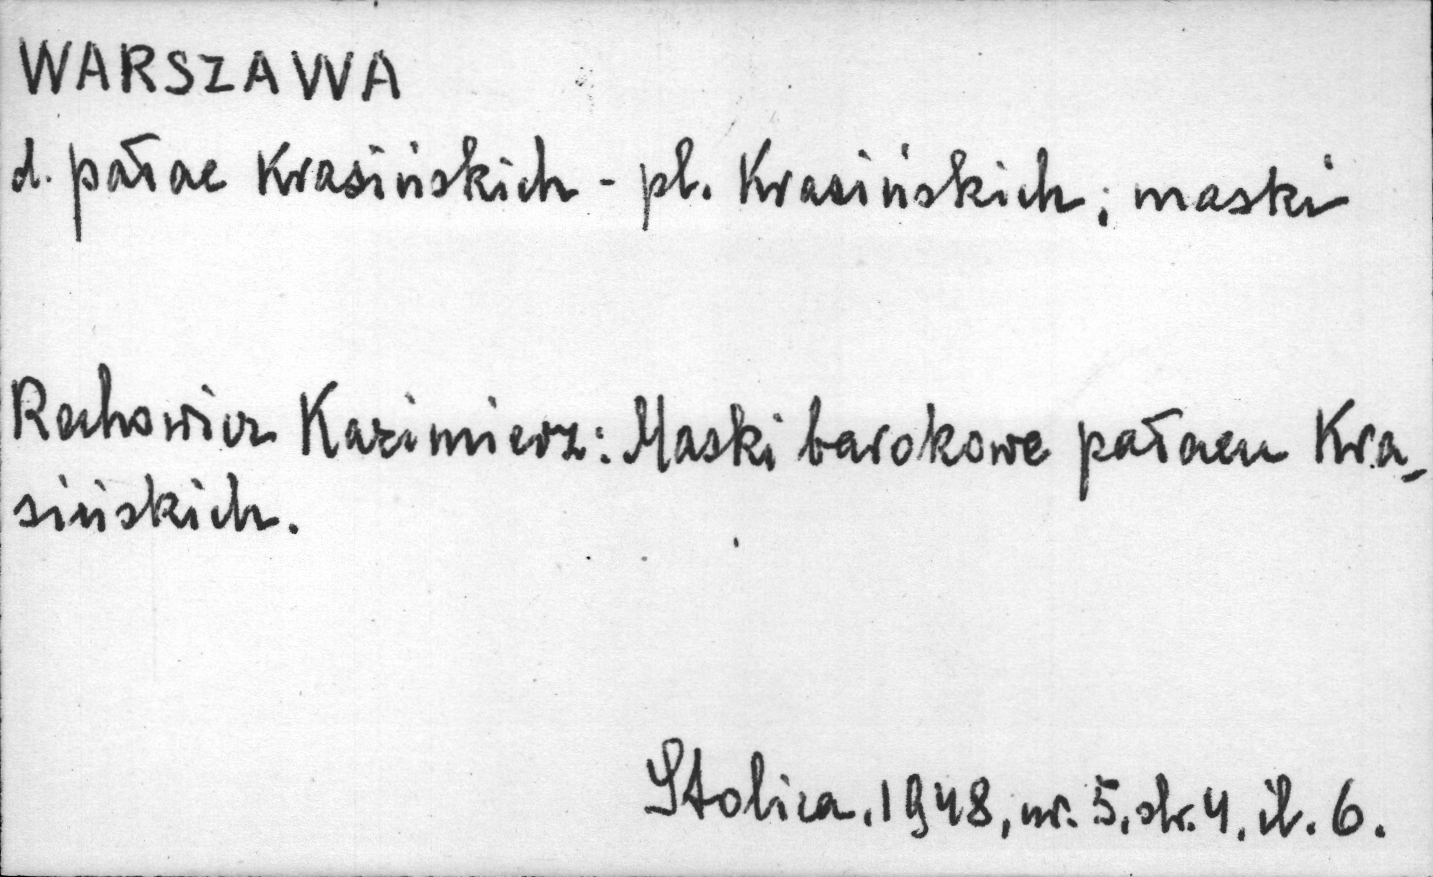 WARSZAWA
d. pałac Krasińskich - pl. Krasińskich; maski
Rachowicz Kazimierz: Maski barokowe pałacu Kra-
sińskich.
Stolica. 1948, nr. 5, str. 4, il. 6.